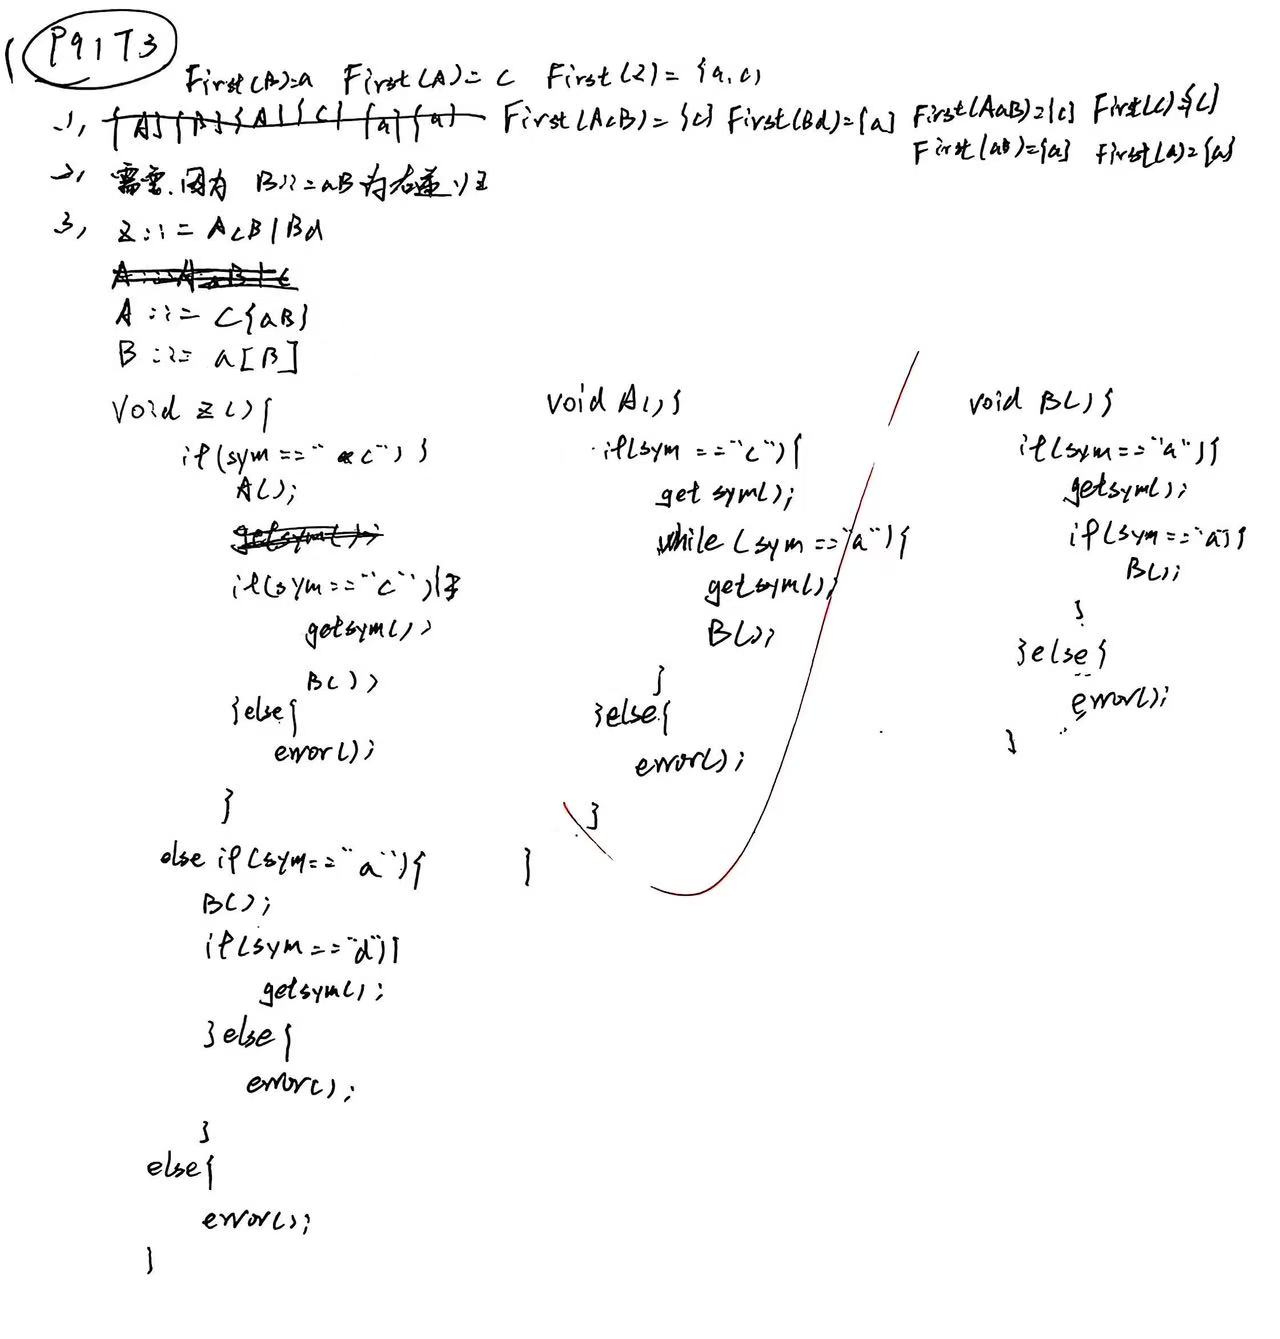 P91T3
First(B)=a First(A)=c First(Z)={a,c}
1, First(AcB)={c} First(Bd)={a} First(AaB)={c} First(c)={c}
First(aB)={a} First(a)={a}
2, 需要,因为 B::=aB为右递归
3, Z::=AcB|Bd
A::=AaB|c
A::=c{aB}
B::=a[B]
void Z(){
if(sym=="c"){
A();
getsym();
if(sym=="c"){
getsym();
B();
}else{
error();
}
else if(sym=="a"){
B();
if(sym=="d"){
getsym();
}else{
error();
}
else{
error();
}
void A(){
if(sym=="c"){
getsym();
while(sym=="a"){
getsym();
B();
}
}else{
error();
}
}
void B(){
if(sym=="a"){
getsym();
if(sym=="a"){
B();
}
}else{
error();
}